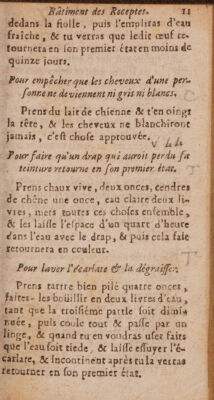 Bâtiment des Receptes. 11
dedans la fiolle, puis l'empliras d'eau
fraîche, & tu verras que ledit œuf re-
tournera en son premier état en moins de
quinze jours.
Pour empêcher que les cheveux d'une per-
sonne ne deviennent ni gris ni blancs.
Prens du lait de chienne & t'en oingt
la tête, & les cheveux ne blanchiront
jamais, c'est chose approuvée.
Pour faire qu'un drap qui auroit perdu sa
teinture retourne en son premier état.
Prens chaux vive, deux onces, cendres
de chêne une once, eau claire deux li-
vres, mets toutes ces choses ensemble,
& les laisse l'espace d'un quart d'heure
dans l'eau avec le drap, & puis cela fait
retournera en couleur.
Pour laver l'écarlate & la dégraisser.
Prens tartre bien pilé quatre onces,
faites-les boüillir en deux livres d'eau,
tant que la troisiéme partie soit dimi-
nuée, puis coule tout & passe par un
linge, & quand tu en voudras user faits
que l'eau soit tiede, & laisse essuyer l'é-
carlate, & incontinent après tu la verras
retourner en son premier état.